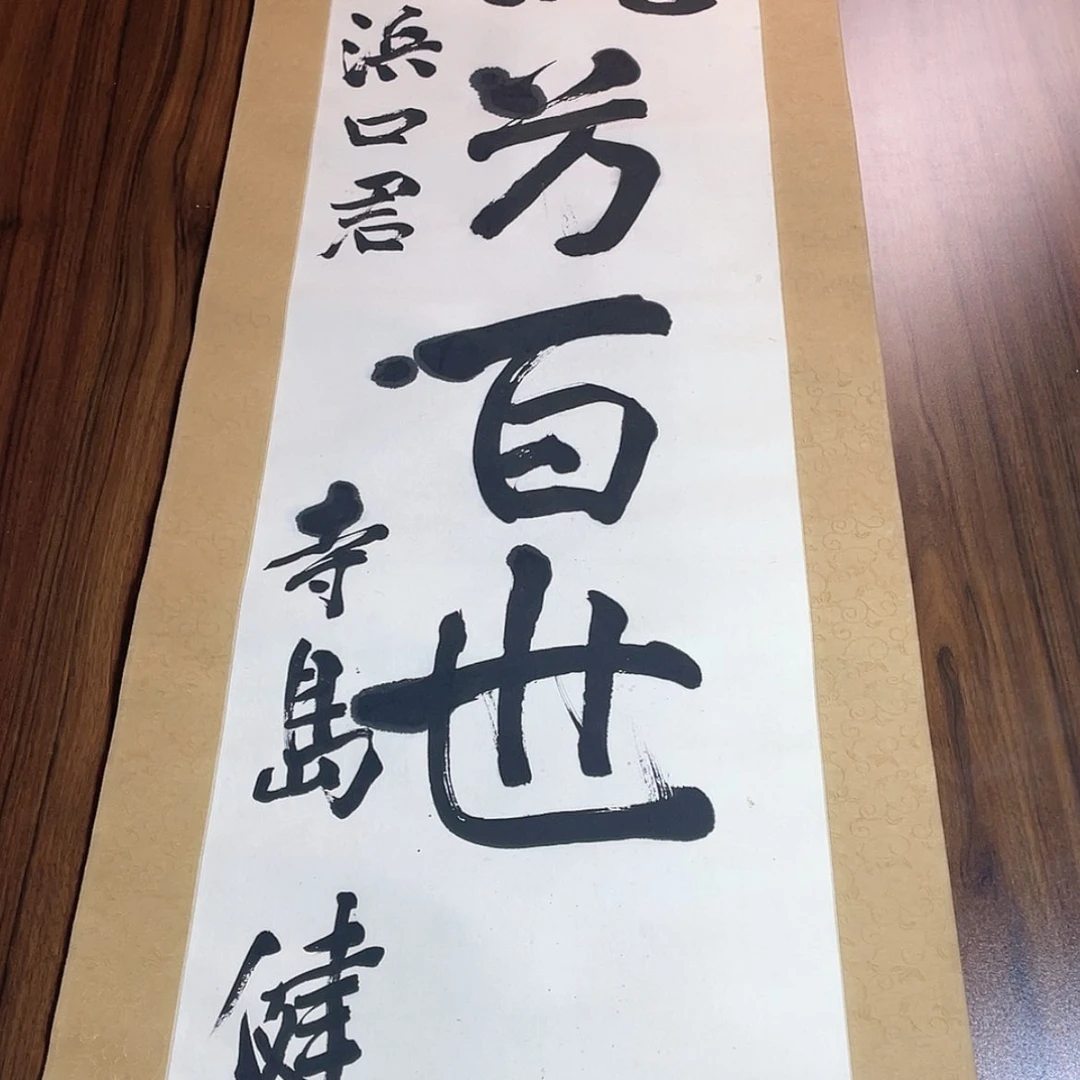 芳百世
浜口君
寺島健